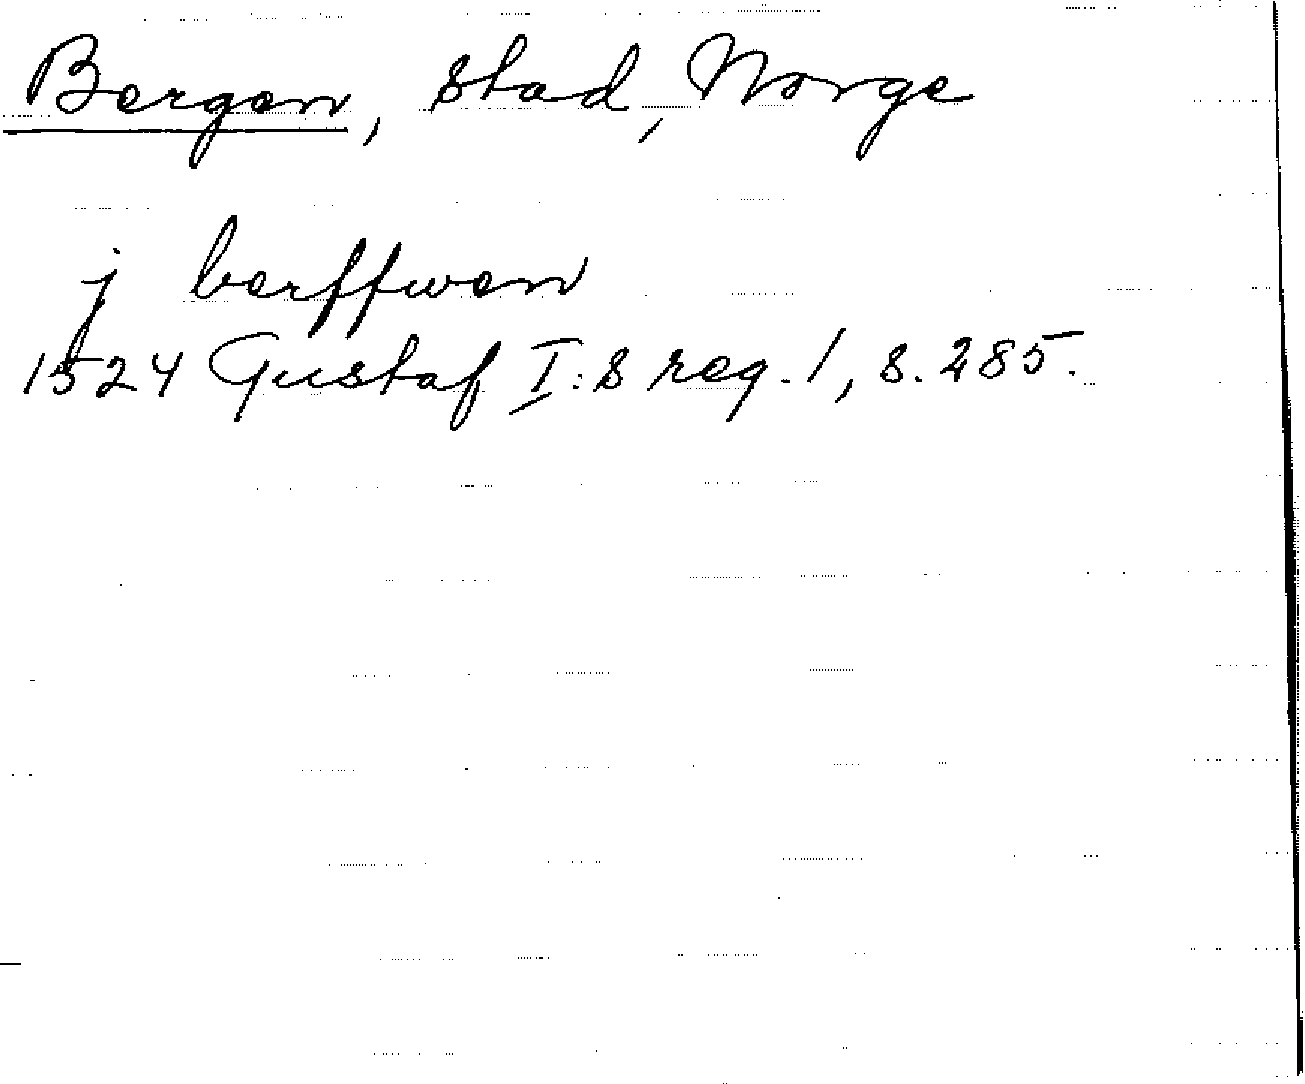 Bergen, stad, Norge
j berffwen
1524 Gustaf I:s reg. 1, s. 285.